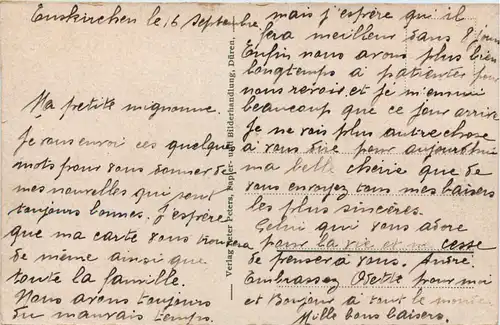 Euskirchen le 16 Septembre
Ma petite mignonne.
Je vous envoi ces quelque
mots pour vous donner de
mes nouvelles qui sont
toujours bonnes. J'espère
que ma carte vous trouvera
de même ainsi que
toute la famille.
Nous avons toujours
du mauvais temps.
Verlag Peter Peters, Papier- und Bilderhandlung, Düren.
mais j'espère qui il
fera meilleur dans 8 jours
Enfin nous avons plus bien
longtemps a patienter pour
nous revoir, et je m'ennui
beaucoup que ce jour arrive
Je ne vais plus autre chose
a vous dire pour aujourd'hui
ma belle chérie que de
vous envoyez tous mes baisers
les plus sincères.
Celui qui vous adore
pour la vie et ne cesse
de penser a vous. André.
Embrassez Odette pour moi
et Bonjour a tout le monde
Mille bons baisers.